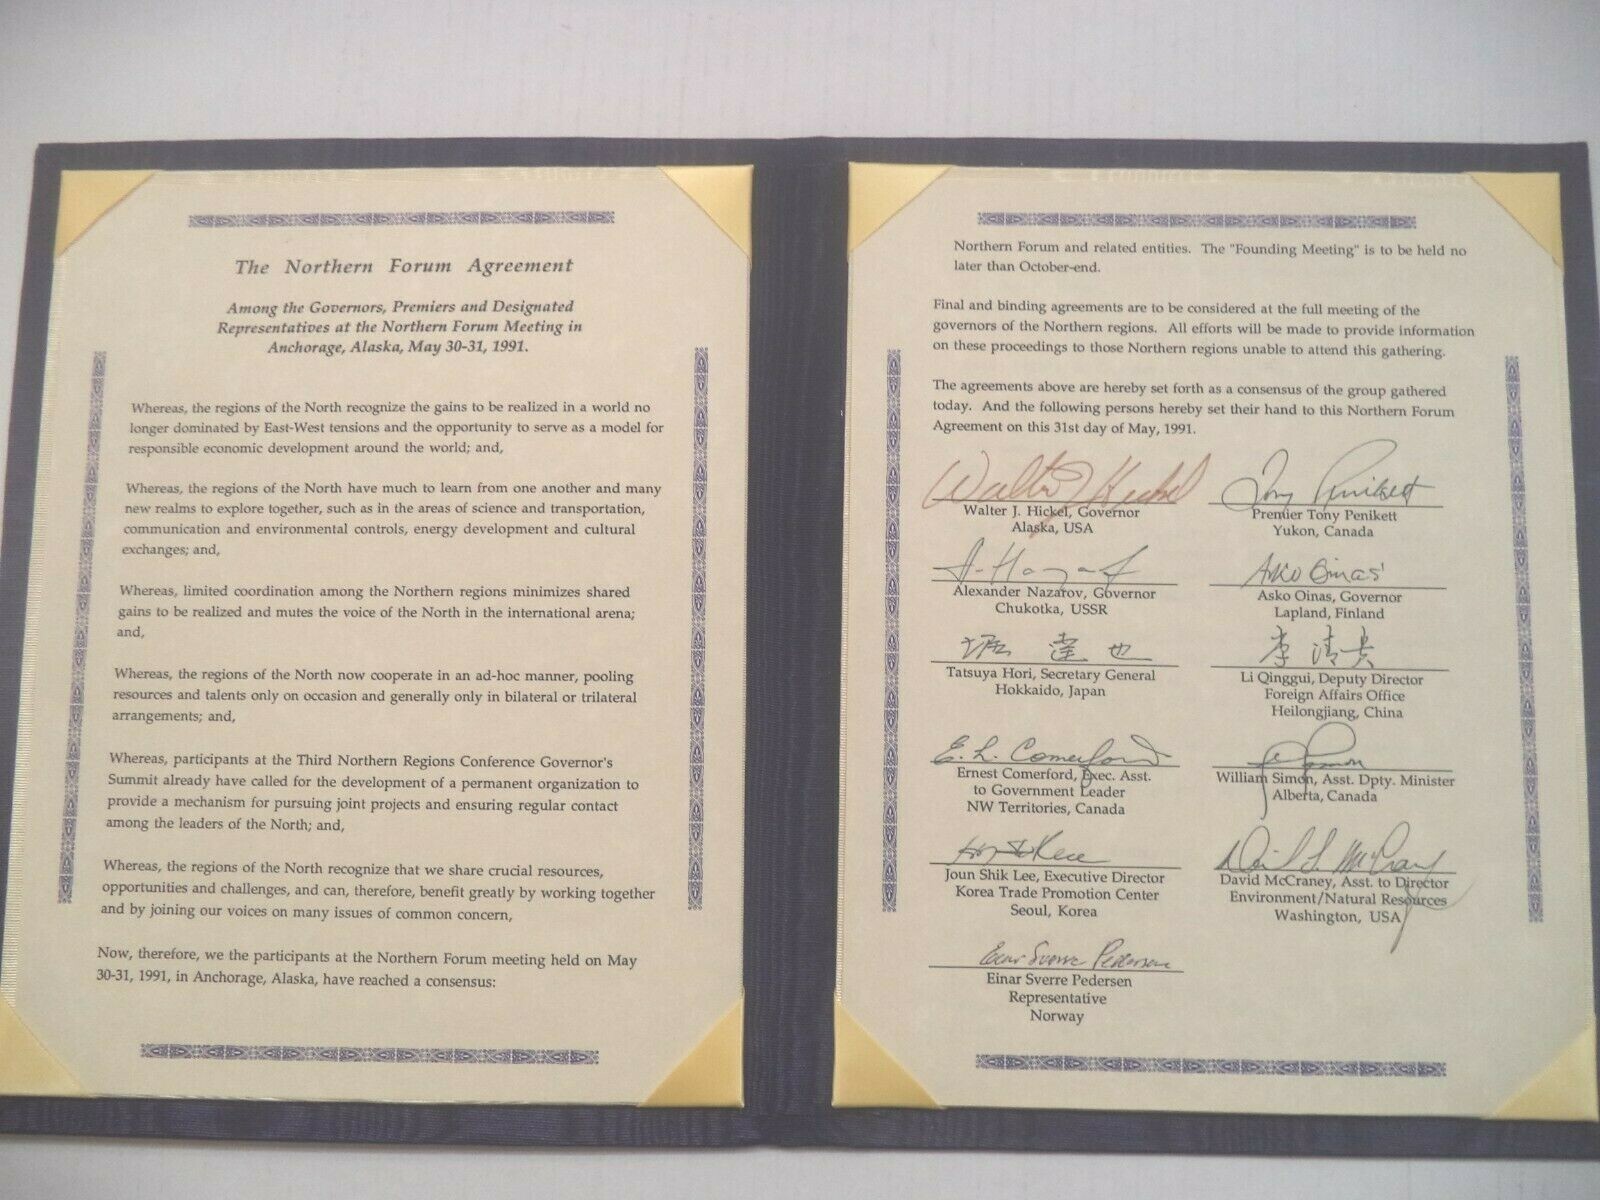 The Northern Forum Agreement
Among the Governors, Premiers and Designated
Representatives at the Northern Forum Meeting in
Anchorage, Alaska, May 30-31, 1991.
Whereas, the regions of the North recognize the gains to be realized in a world no
longer dominated by East-West tensions and the opportunity to serve as a model for
responsible economic development around the world; and,
Whereas, the regions of the North have much to learn from one another and many
new realms to explore together, such as in the areas of science and transportation,
communication and environmental controls, energy development and cultural
exchanges; and,
Whereas, limited coordination among the Northern regions minimizes shared
gains to be realized and mutes the voice of the North in the international arena;
and,
Whereas, the regions of the North now cooperate in an ad-hoc manner, pooling
resources and talents only on occasion and generally only in bilateral or trilateral
arrangements; and,
Whereas, participants at the Third Northern Regions Conference Governor's
Summit already have called for the development of a permanent organization to
provide a mechanism for pursuing joint projects and ensuring regular contact
among the leaders of the North; and,
Whereas, the regions of the North recognize that we share crucial resources,
opportunities and challenges, and can, therefore, benefit greatly by working together
and by joining our voices on many issues of common concern,
Now, therefore, we the participants at the Northern Forum meeting held on May
30-31, 1991, in Anchorage, Alaska, have reached a consensus:
Northern Forum and related entities. The "Founding Meeting" is to be held no
later than October-end.
Final and binding agreements are to be considered at the full meeting of the
governors of the Northern regions. All efforts will be made to provide information
on these proceedings to those Northern regions unable to attend this gathering.
The agreements above are hereby set forth as a consensus of the group gathered
today. And the following persons hereby set their hand to this Northern Forum
Agreement on this 31st day of May, 1991.
Walter J Hickel
Walter J. Hickel, Governor
Alaska, USA
Tony Penikett
Premier Tony Penikett
Yukon, Canada
Alexander Nazarov, Governor
Chukotka, USSR
Asko Oinas
Asko Oinas, Governor
Lapland, Finland
堀 達也
Tatsuya Hori, Secretary General
Hokkaido, Japan
李清贵
Li Qinggui, Deputy Director
Foreign Affairs Office
Heilongjiang, China
E. L. Comerford
Ernest Comerford, Exec. Asst.
to Government Leader
NW Territories, Canada
William Simon, Asst. Dpty. Minister
Alberta, Canada
Joun Shik Lee, Executive Director
Korea Trade Promotion Center
Seoul, Korea
David L McCraney
David McCraney, Asst. to Director
Environment/Natural Resources
Washington, USA
Einar Sverre Pedersen
Einar Sverre Pedersen
Representative
Norway